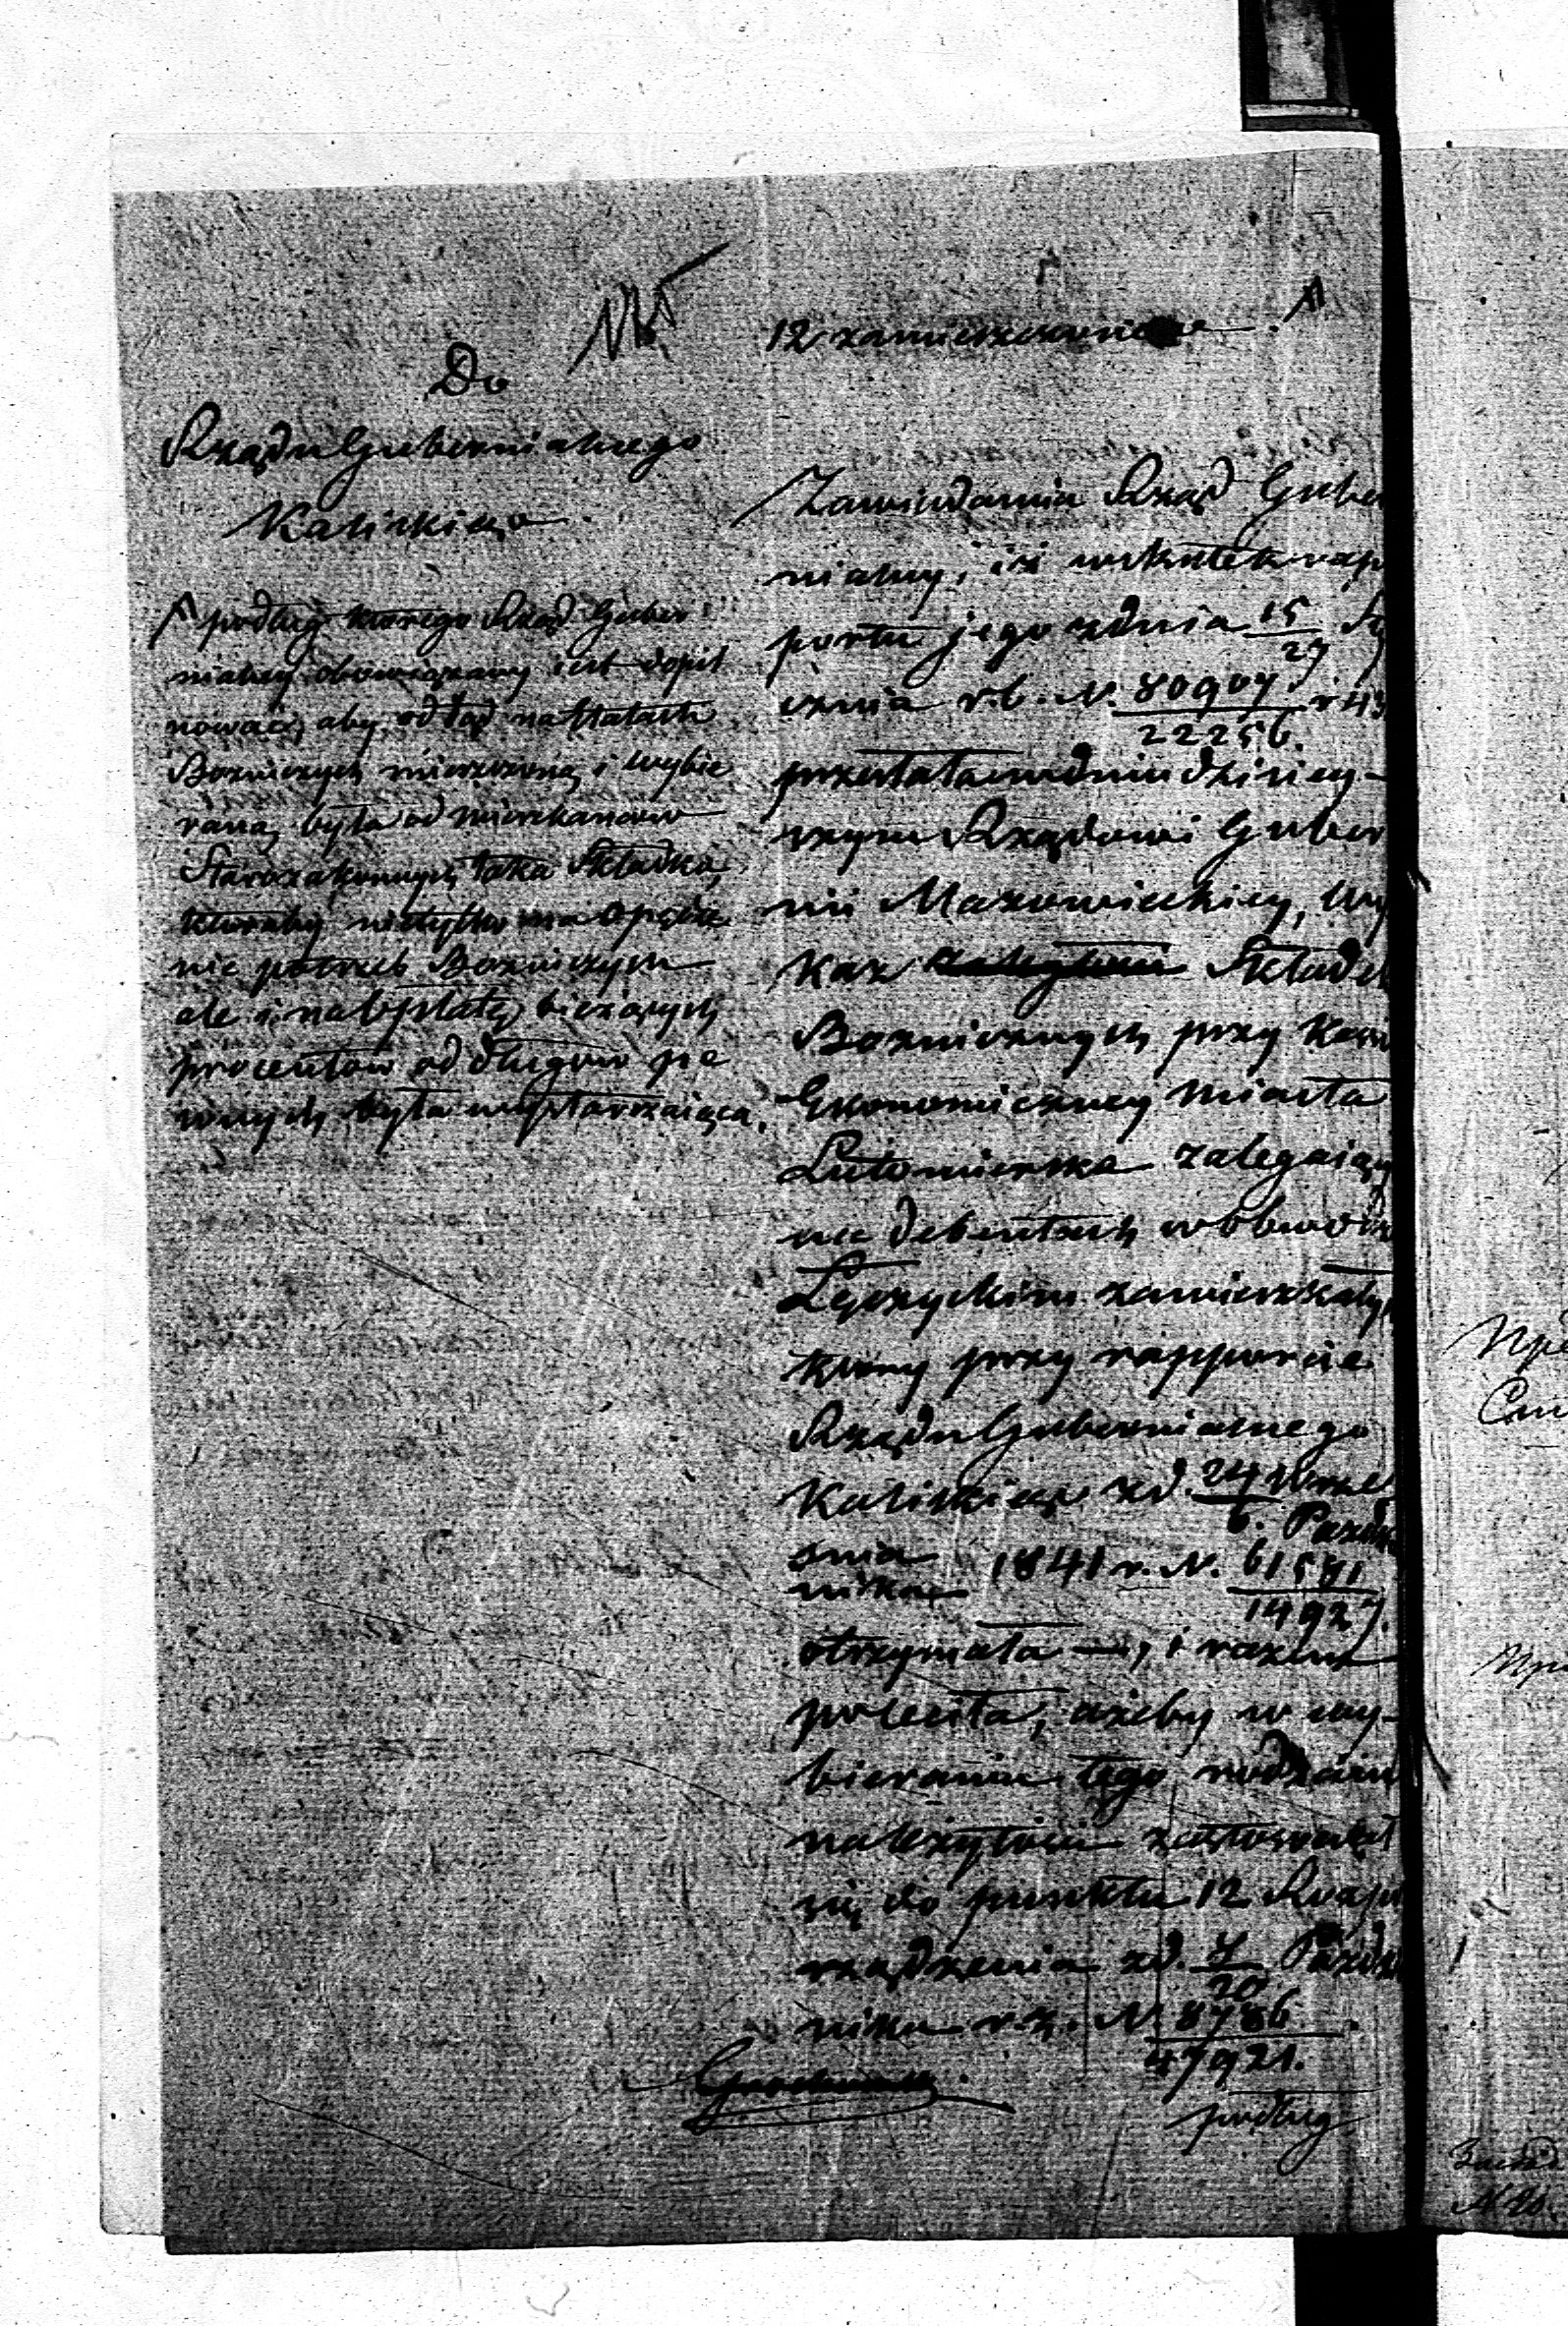 Do
Rządu Gubernialnego
Kaliskiego
podług którego Rząd Guber
nialny obowiązany iest dopil
nować, aby odtąd na Etatach
Bożniczych mieszczoną i wybie
raną była od mieszkańców
Starozakonnych taka składka,
któraby nietylko na opędze
nie potrzeb Bożniczych
ale i na opłatę bieżących
procentów od długów pe
wnych była wystarczaiąca.
12 zamieszczenie
Zawiadamia Rząd Guber
nialny, iż wskutek rap
portu jego z dnia 15/27 
cznia r.b. N. 80907/22256 r 43
przesłała w dniu dzisiey-
szym Rządowi Guber
nii Mazowieckiey, wy
kaz Składek
Bożnicznych przy Kassie
Ekonomiczney Miasta
Lutomierska zalegaiący
na debentach w obwodzie
Łęczyckim zamieszkały
który przy rapporcie
Rządu Gubernialnego
Kaliskiego z d. 24 Wrze/6. Paździer
śnia/nika 1841 r. N. 61581/14927.
otrzymała —, i razem
poleciła, ażeby w wy-
bieraniu tego rodzaiu
należytości zastosował
się do punktu 12 Rozpo
rządzenia z d. 7/20 Paździer
nika r. z. N. 8786/47921.
podług